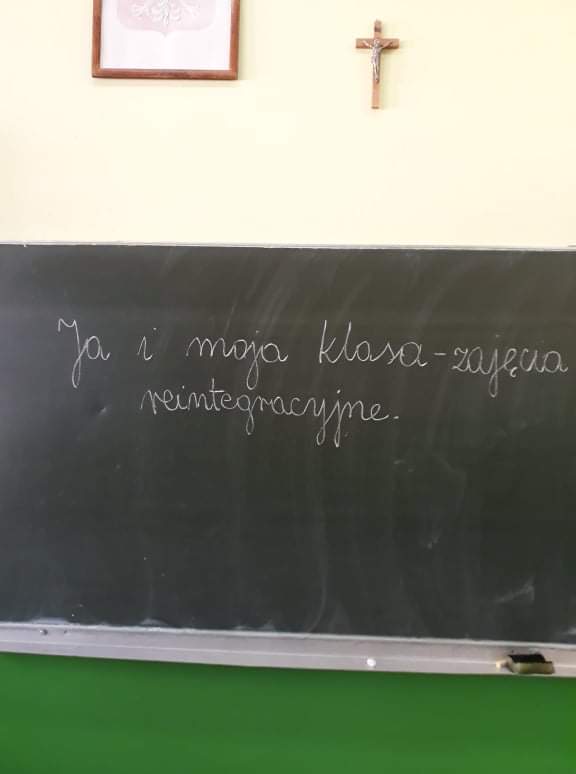 Ja i moja klasa - zajęcia
reintegracyjne.